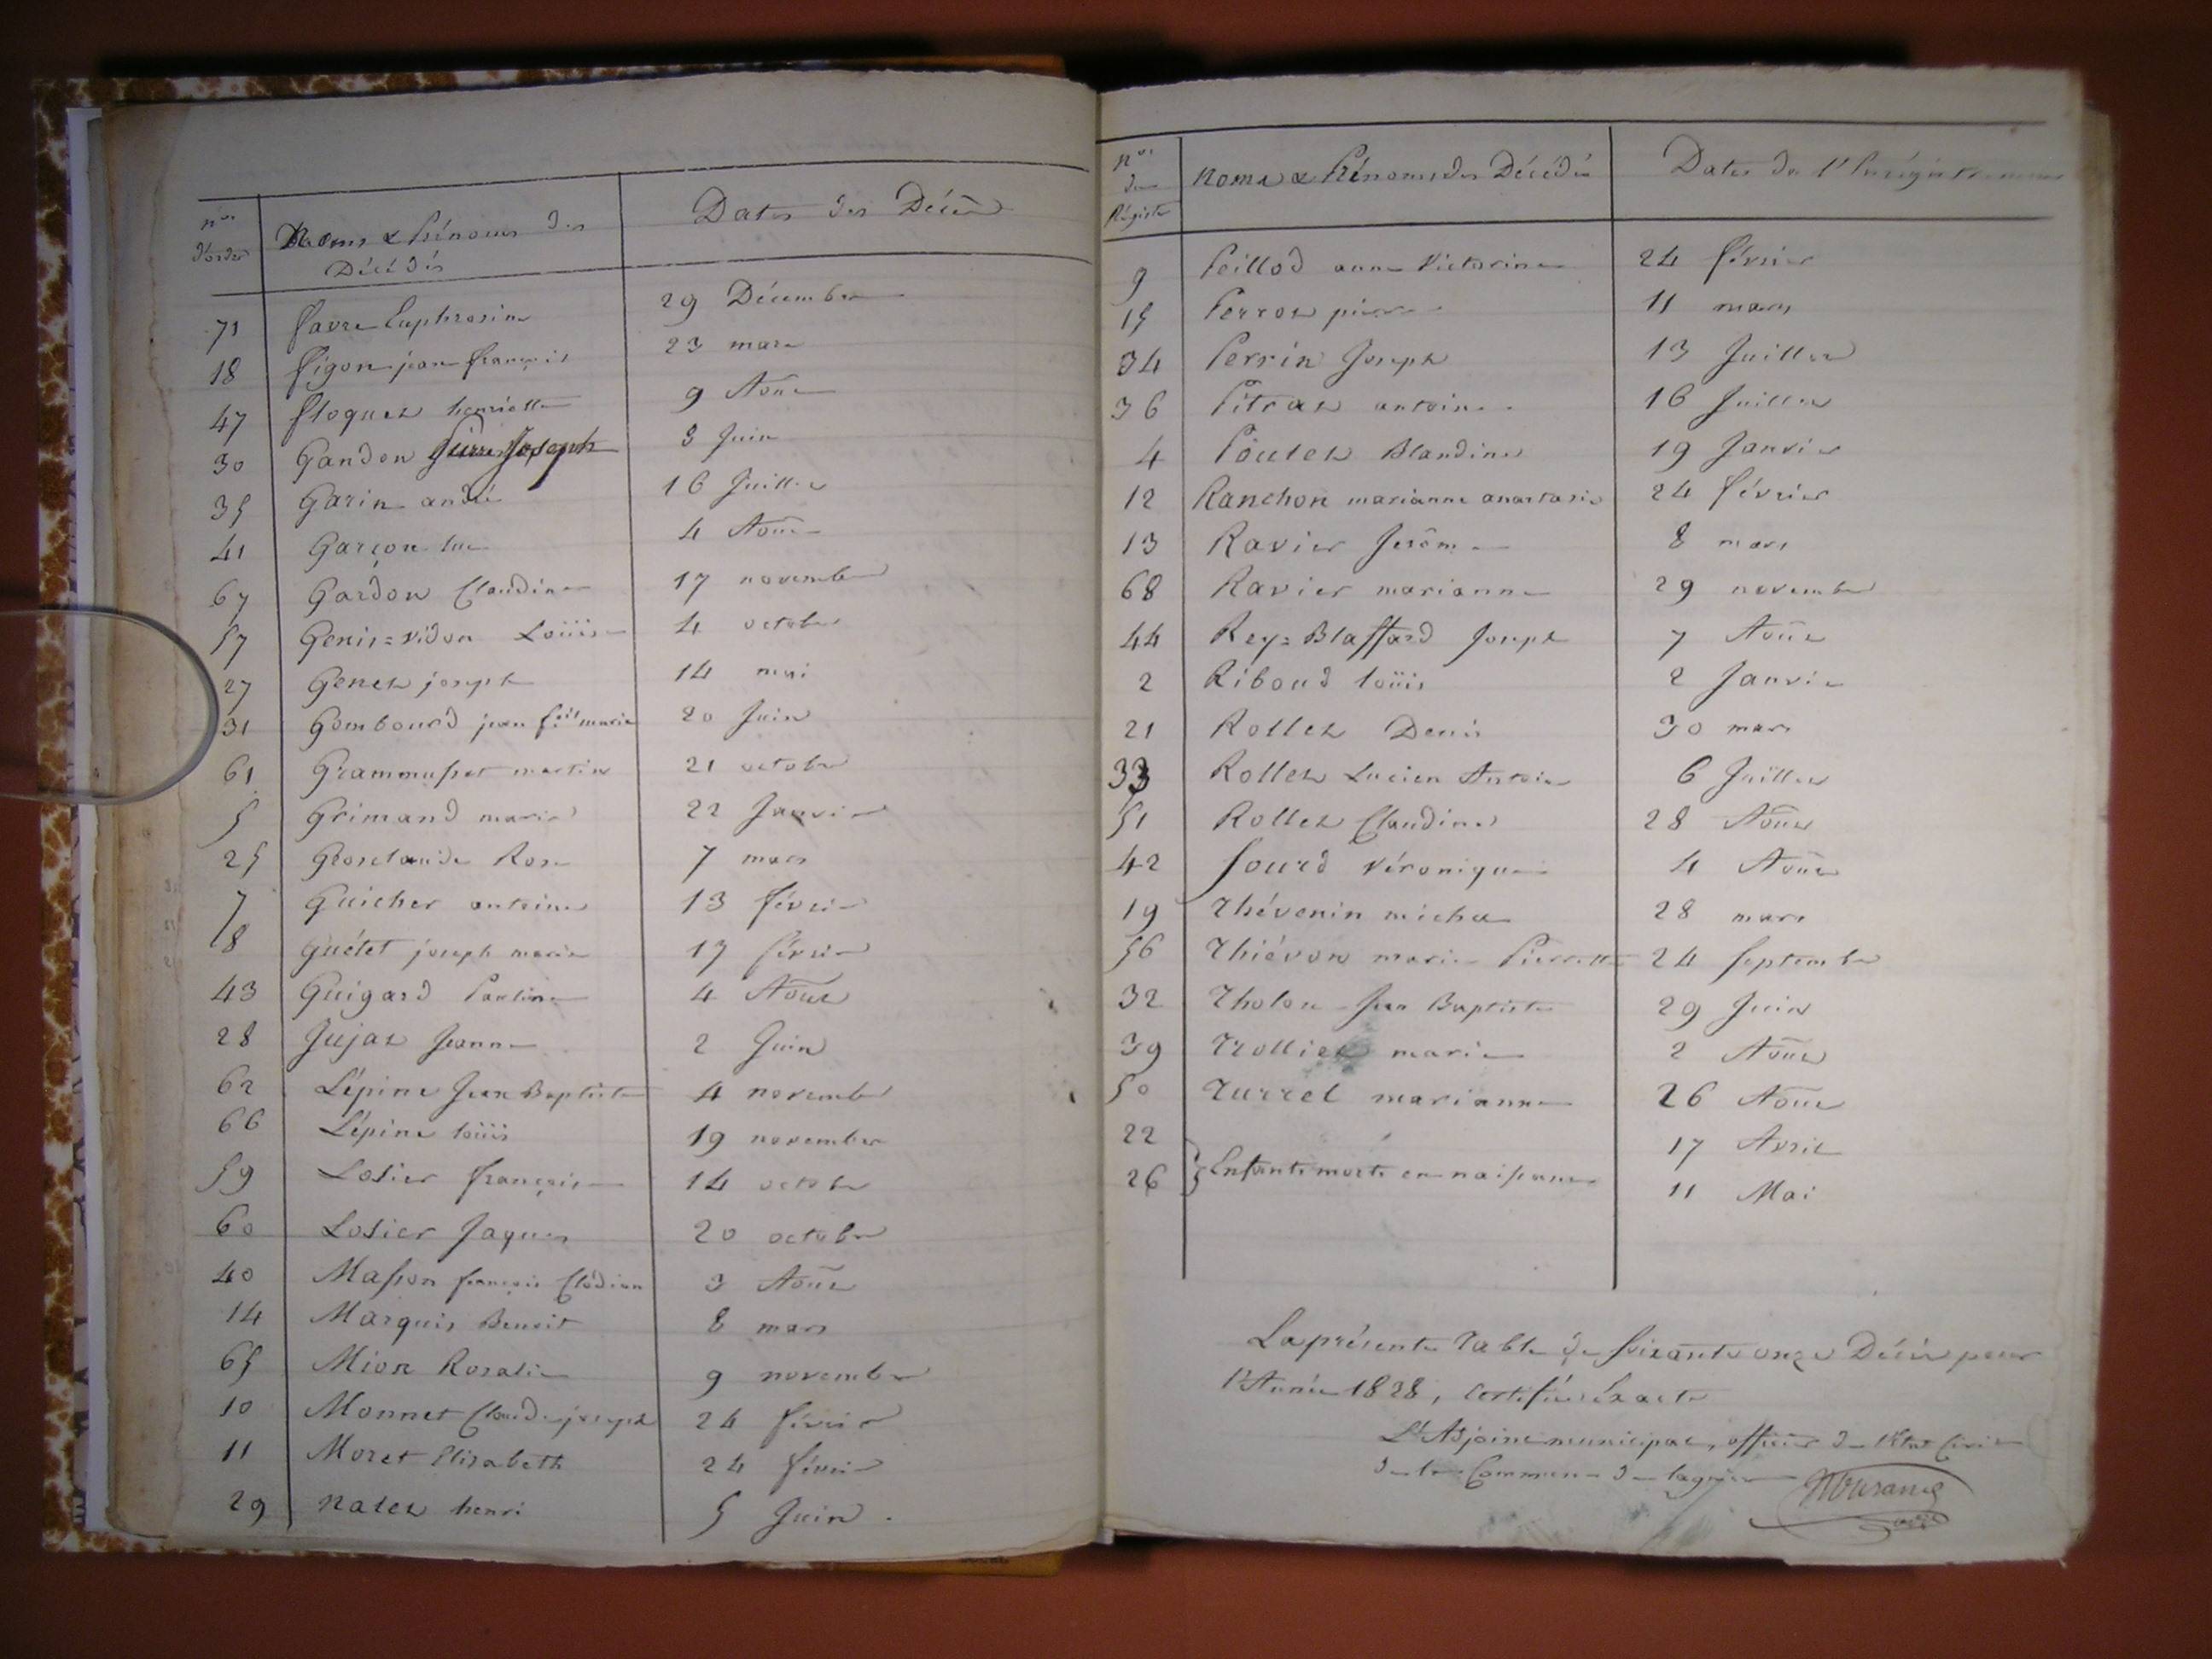 nos d'ordre Noms & Prénoms des Décédés Dates des Décès
71 favre Euphrosine 29 Décembre
18 figon jean françois 23 mars
47 floquet henriette 9 Août
30 Gandon Pierre Joseph 8 Juin
35 Garin andré 16 Juillet
41 Garçon luc 4 Août
67 Gardon Claudine 17 novembre
57 Genis=vidon Loüise 4 octobre
27 Genet joseph 14 mai
31 Gombourd jean fçois marie 20 Juin
61 Grammusset martine 21 octobre
5 Grimand marie 22 Janvier
25 Grosclaude Rose 7 mars
7 Guicher antoine 13 février
8 Guétet joseph marie 17 février
43 Guigard Pauline 4 Août
28 Jujat Jeanne 2 Juin
62 Lépine Jean Baptiste 4 novembre
66 Lépine loüis 19 novembre
59 Losier françoise 14 octobre
60 Losier Jaques 20 octobre
40 Masson françois Clodion 3 Août
14 Marquis Benoit 8 mars
65 Mion Rosalie 9 novembre
10 Monnet Claude joseph 24 février
11 Moret Elisabeth 24 février
29 Nalet henri 5 Juin.
nos des Régistre Noms & Prénoms des Décédés Dates de l'Enrégistrement
9 Peillod anne Victorine 24 février
15 Perrot pierre 11 mars
34 Perrin Joseph 13 Juillet
36 Pitrat antoine 16 Juillet
4 Poulet Blandine 19 Janvier
12 Ranchon marianne anastasie 24 février
13 Ravier Jerôme 8 mars
68 Ravier marianne 29 novembre
44 Rey=Blaffard Joseph 7 Août
2 Riboud loüis 2 Janvier
21 Rollet Denis 30 mars
33 Rollet Lucien Antoine 6 Juillet
51 Rollet Claudine 28 Août
42 Sourd véronique 4 Août
19 Thévenin michel 28 mars
56 Thiévon marie Pierrette 24 Septembre
32 Tholon Jean Baptiste 29 Juin
39 Trolliet marie 2 Août
50 Turrel marianne 26 Août
22 17 Avril
26 Enfants morts en naissant 11 Mai
La présente Table de Soixante onze Décès pour
l'Année 1828, certifiée éxacte
L'Adjoint municipal, officier de l'état Civil
de la Commune de lagnieu